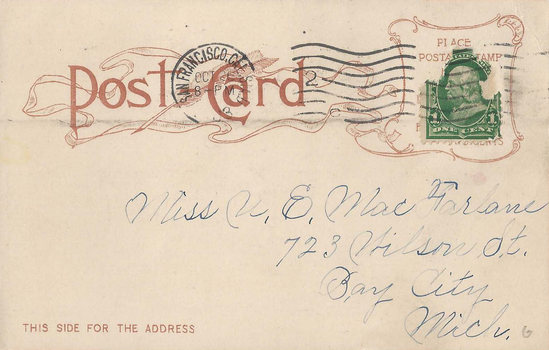 Post Card
SAN FRANCISCO, CAL.
OCT
8 PM
2
PLACE
POSTAGE STAMP
1 ONE CENT 1
Miss V. E. Mac Farlane
723 Wilson St.
Bay City
Mich.
6
THIS SIDE FOR THE ADDRESS